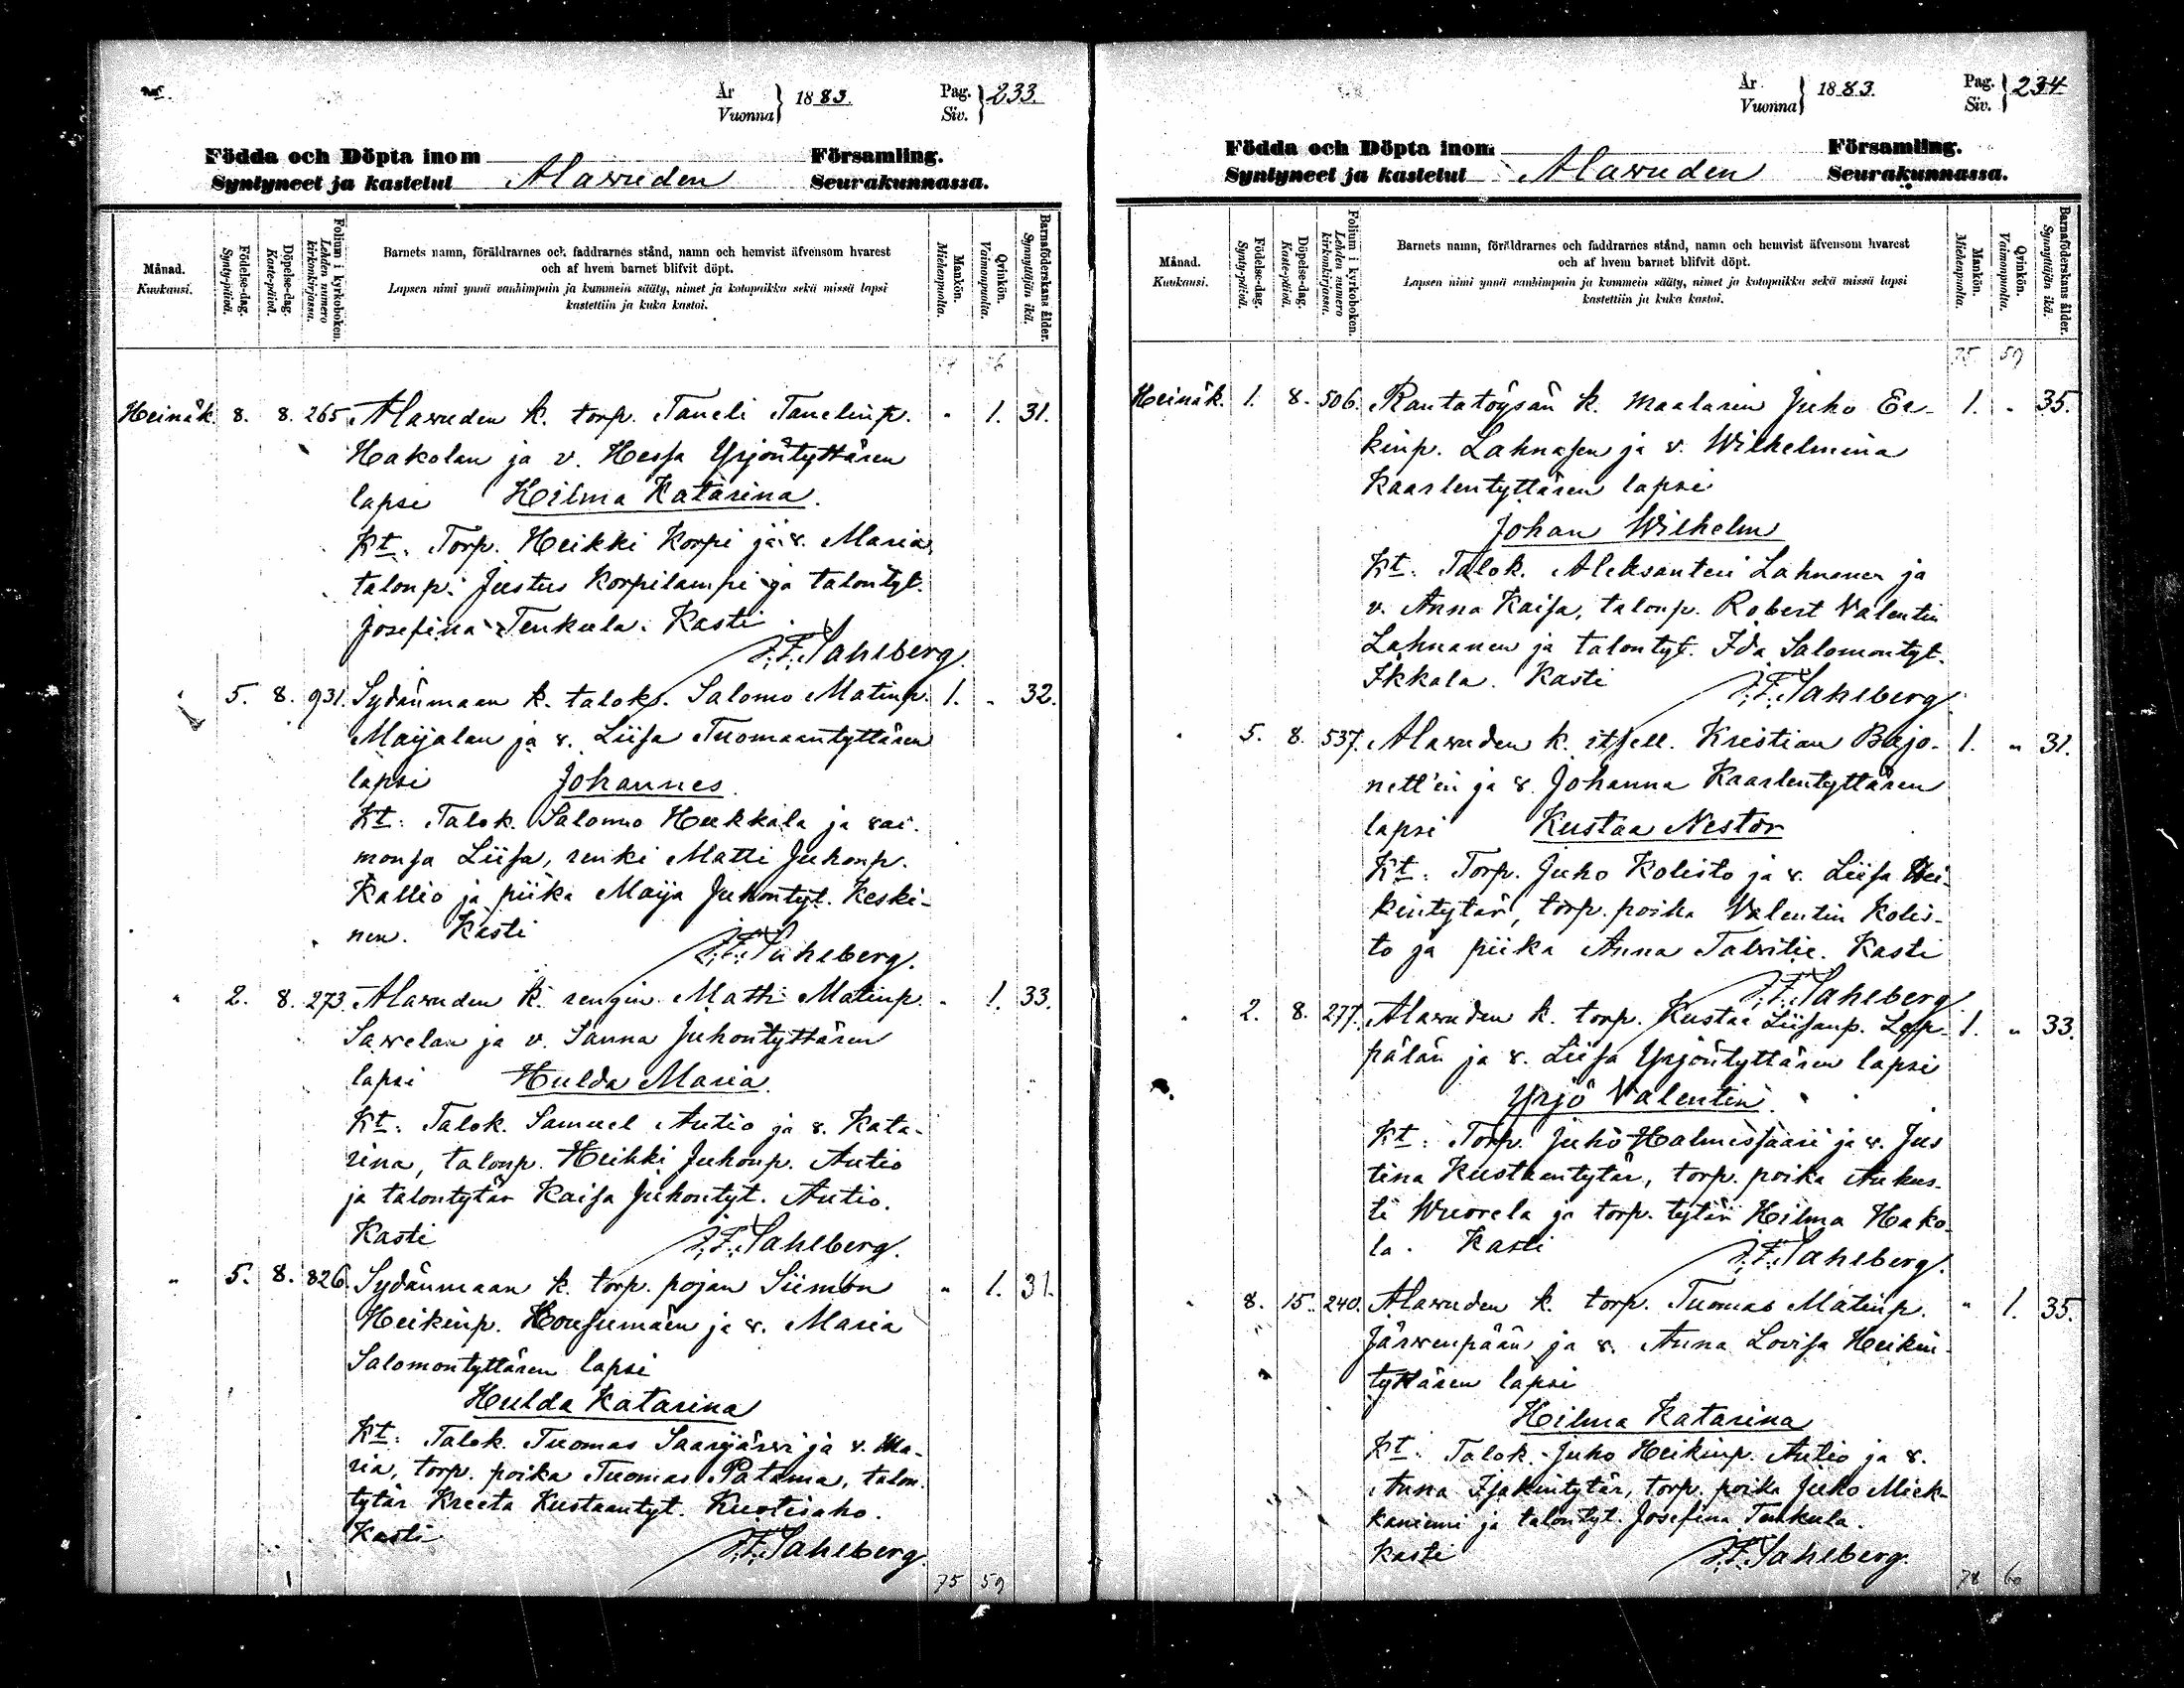 År
Vuonna } 1883. Pag.
Siv. } 233.
Födda och Döpta inom Församling.
Syntyneet ja kastetut Alawuden Seurakunnassa.
Månad.
Kuukausi.
Födelse-dag.
Synty-päivä.
Döpelse-dag.
Kaste-päivä.
Folium i kyrkoboken.
Lehden numero kirkonkirjassa.
Barnets namn, föräldrarnes och faddrarnes stånd, namn och hemvist äfvensom hvarest
och af hvem barnet blifvit döpt.
Lapsen nimi ynnä vanhimpain ja kummein sääty, nimet ja kotopaikka sekä missä lapsi
kastettiin ja kuka kastoi.
Mankön.
Miehenpuolta.
Qvinkön.
Vaimonpuolta.
Barnaföderskans ålder.
Synnyttäjän ikä.
Heinäk. 8. 8. 265 Alawuden k. torp. Taneli Tanelinp. " 1. 31.
Hakolan ja v. Hessa Yrjöntyttären
lapsi Hilma Katarina.
Kt: Torp. Heikki Korpi ja v. Maria,
talonp. Justus Korpilampi ja talontyt.
Josefina Tenkula. Kasti
J.F. Sahlberg.
" 5. 8. 931. Sydänmaan k. talok. Salomo Matinp. 1. " 32.
Maijalan ja v. Liisa Tuomaantyttären
lapsi Johannes.
Kt: Talok. Salomo Heikkala ja vai-
monsa Liisa, renki Matti Juhonp.
Kallio ja piika Maija Juhontyt. Keski-
nen. Kasti
J.F. Sahlberg.
" 2. 8. 273. Alawuden k. rengin Matti Matinp. " 1. 33.
Sawelan ja v. Sanna Juhontyttären
lapsi Hulda Maria.
Kt: Talok. Samuel Autio ja v. Kata-
rina, talonp. Heikki Juhonp. Autio
ja talontytär Kaisa Juhontyt. Autio.
Kasti J.F. Sahlberg.
" 5. 8. 826. Sydänmaan k. torp. pojan Siimon " 1. 31.
Heikinp. Honsumäen ja v. Maria
Salomontyttären lapsi
Hulda Katarina
Kt: Talok. Tuomas Saarijärwi ja v. Ma-
ria, torp. poika Tuomas Patama, talon-
tytär Kreeta Kustaantyt. Kuotisaho.
Kasti
J.F. Sahlberg.
75 59
År
Vuonna } 1883. Pag.
Siv. } 234
Födda och Döpta inom Församling.
Syntyneet ja kastetut Alawuden Seurakunnassa.
Månad.
Kuukausi.
Födelse-dag.
Synty-päivä.
Döpelse-dag.
Kaste-päivä.
Folium i kyrkoboken.
Lehden numero kirkonkirjassa.
Barnets namn, föräldrarnes och faddrarnes stånd, namn och hemvist äfvensom hvarest
och af hvem barnet blifvit döpt.
Lapsen nimi ynnä vanhimpain ja kummein sääty, nimet ja kotopaikka sekä missä lapsi
kastettiin ja kuka kastoi.
Mankön.
Miehenpuolta.
Qvinkön.
Vaimonpuolta.
Barnaföderskans ålder.
Synnyttäjän ikä.
75 59
Heinäk. 1. 8. 506. Rantatöysän k. maalarin Juho Er- 1. " 35.
kinp. Lahnasen ja v. Wilhelmina
Kaarlentyttären lapsi
Johan Wilhelm
Kt: Talok. Aleksanteri Lahnanen ja
v. Anna Kaisa, talonp. Robert Valentin
Lahnanen ja talontyt. Ida Salomontyt.
Ikkala. Kasti J.F. Sahlberg.
" 5. 8. 537. Alawuden k. itsell. Kristian Bajo- 1. " 31.
nett'in ja v. Johanna Kaarlentyttären
lapsi Kustaa Nestor
Kt: Torp. Juho Kolisto ja v. Liisa Hei-
kintytär, torp. poika Valentin Kolis-
to ja piika Anna Talwitie. Kasti
J.F. Sahlberg.
" 2. 8. 277. Alawuden k. torp. Kustaa Liisanp. Lep- 1. " 33.
pälän ja v. Liisa Yrjöntyttären lapsi
Yrjö Valentin.
Kt: Torp. Juho Halmessaari ja v. Jus
tina Kustaantytär, torp. poika Aukus-
ti Wuorela ja torp. tytär Hilma Hako-
la. Kasti J.F. Sahlberg.
" 8. 15. 240. Alawuden k. torp. Tuomas Matinp. " 1. 35.
Järwenpään ja v. Anna Lovisa Heikin-
tyttären lapsi
Hilma Katarina
Kt: Talok. Juho Heikinp. Autio ja v.
Anna Isakintytär, torp. poika Juho Miek-
kaniemi ja talontyt. Josefina Tenkula.
Kasti J.F. Sahlberg.
78 60